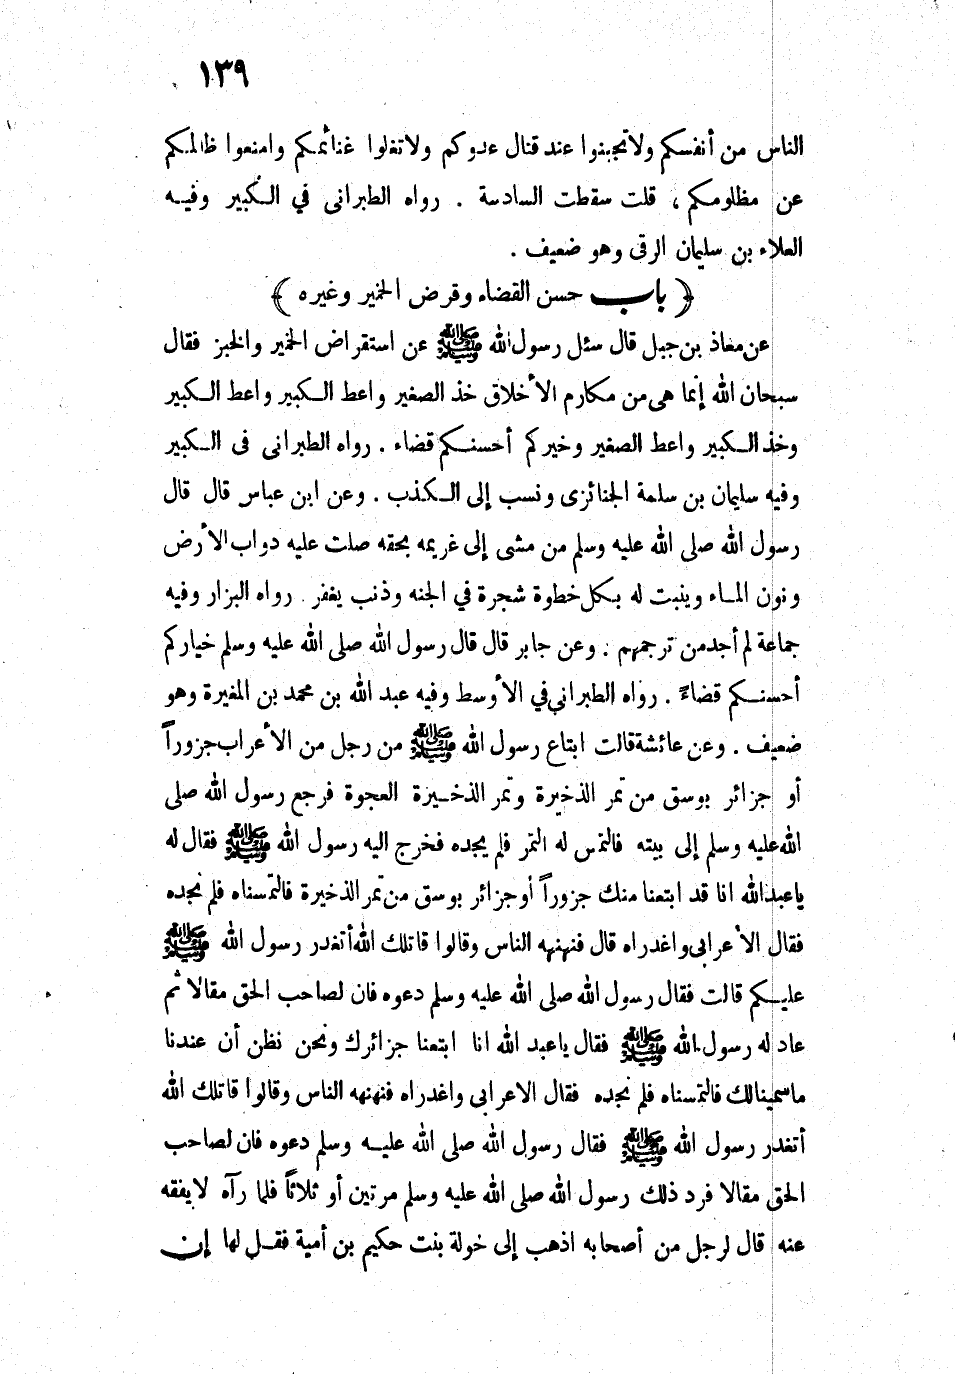 ١٣٩
الناس من أنفسكم ولاتجبنوا عند قتال عدوكم ولاتغلوا غنائمكم وامنعوا ظالمكم
عن مظلومكم، قلت سقطت السادسة . رواه الطبرانى في الكبير وفيه
العلاء بن سليمان الرقى وهو ضعيف .
﴿ باب حسن القضاء وقرض الخمير وغيره ﴾
عن معاذ بن جبل قال سئل رسول الله ﷺ عن استقراض الخمير والخبز فقال
سبحان الله إنما هى من مكارم الأخلاق خذ الصغير واعط الكبير واعط الكبير
وخذ الكبير واعط الصغير وخيركم أحسنكم قضاء . رواه الطبرانى فى الكبير
وفيه سليمان بن سلمة الجنائزى ونسب إلى الكذب . وعن ابن عباس قال قال
رسول الله صلى الله عليه وسلم من مشى إلى غريمه بحقه صلت عليه دواب الأرض
ونون الماء وينبت له بكل خطوة شجرة في الجنه وذنب يغفر . رواه البزار وفيه
جماعة لم أجد من ترجمهم . وعن جابر قال قال رسول الله صلى الله عليه وسلم خياركم
أحسنكم قضاءً . رواه الطبرانى في الأوسط وفيه عبد الله بن محمد بن المغيرة وهو
ضعيف . وعن عائشة قالت ابتاع رسول الله ﷺ من رجل من الأعراب جزوراً
أو جزائر بوسق من تمر الذخيرة وتمر الذخيرة العجوة فرجع رسول الله صلى
الله عليه وسلم إلى بيته فالتمس له التمر فلم يجده فخرج اليه رسول الله ﷺ فقال له
ياعبدالله انا قد ابتعنا منك جزوراً أوجزائر بوسق من تمر الذخيرة فالتمسناه فلم نجده
فقال الأعرابى واغدراه قال فنهنهه الناس وقالوا قاتلك الله أتغدر رسول الله ﷺ
عليكم قالت فقال رسول الله صلى الله عليه وسلم دعوه فان لصاحب الحق مقالا ثم
عاد له رسول الله ﷺ فقال ياعبد الله انا ابتعنا جزائرك ونحن نظن أن عندنا
ماسمينالك فالتمسناه فلم نجده فقال الاعرابى واغدراه فنهنهه الناس وقالوا قاتلك الله
أتغدر رسول الله ﷺ فقال رسول الله صلى الله عليه وسلم دعوه فان لصاحب
الحق مقالا فرد ذلك رسول الله صلى الله عليه وسلم مرتين أو ثلاثاً فلما رآه لايفقه
عنه قال لرجل من أصحابه اذهب إلى خولة بنت حكيم بن أمية فقل لها إن